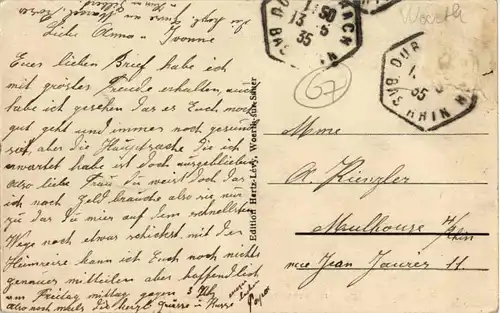 Liebe Anna u Ivonne
Euer lieben Brief habe ich
mit grösster Freude erhalten, auch
habe ich gesehen das es Euch noch
gut geht und immer noch gesund
seit, aber die Hauptsache die ich
erwartet habe ist doch ausgeblieben
also liebe Frau du weist doch das
ich noch Geld brauche also sei nur
zu das du mier auf dem schnellsten
Wege noch etwas schickst mit der
Heimreise kann ich Euch noch nichts
genauer mitteilen aber hoffendlich
am Freitag mittag gegen 3 Uhr
also noch mals die herzl. Grüsse u Küsse
Papa
Edition Hertz-Lévy, Woerth-sur-Sauer
13 5
35
BAS RHIN
35
BAS RHIN
67
Woerth
Mme
A Kienzler
Mulhouse H/Rhin
rue Jean Jaurès 11.